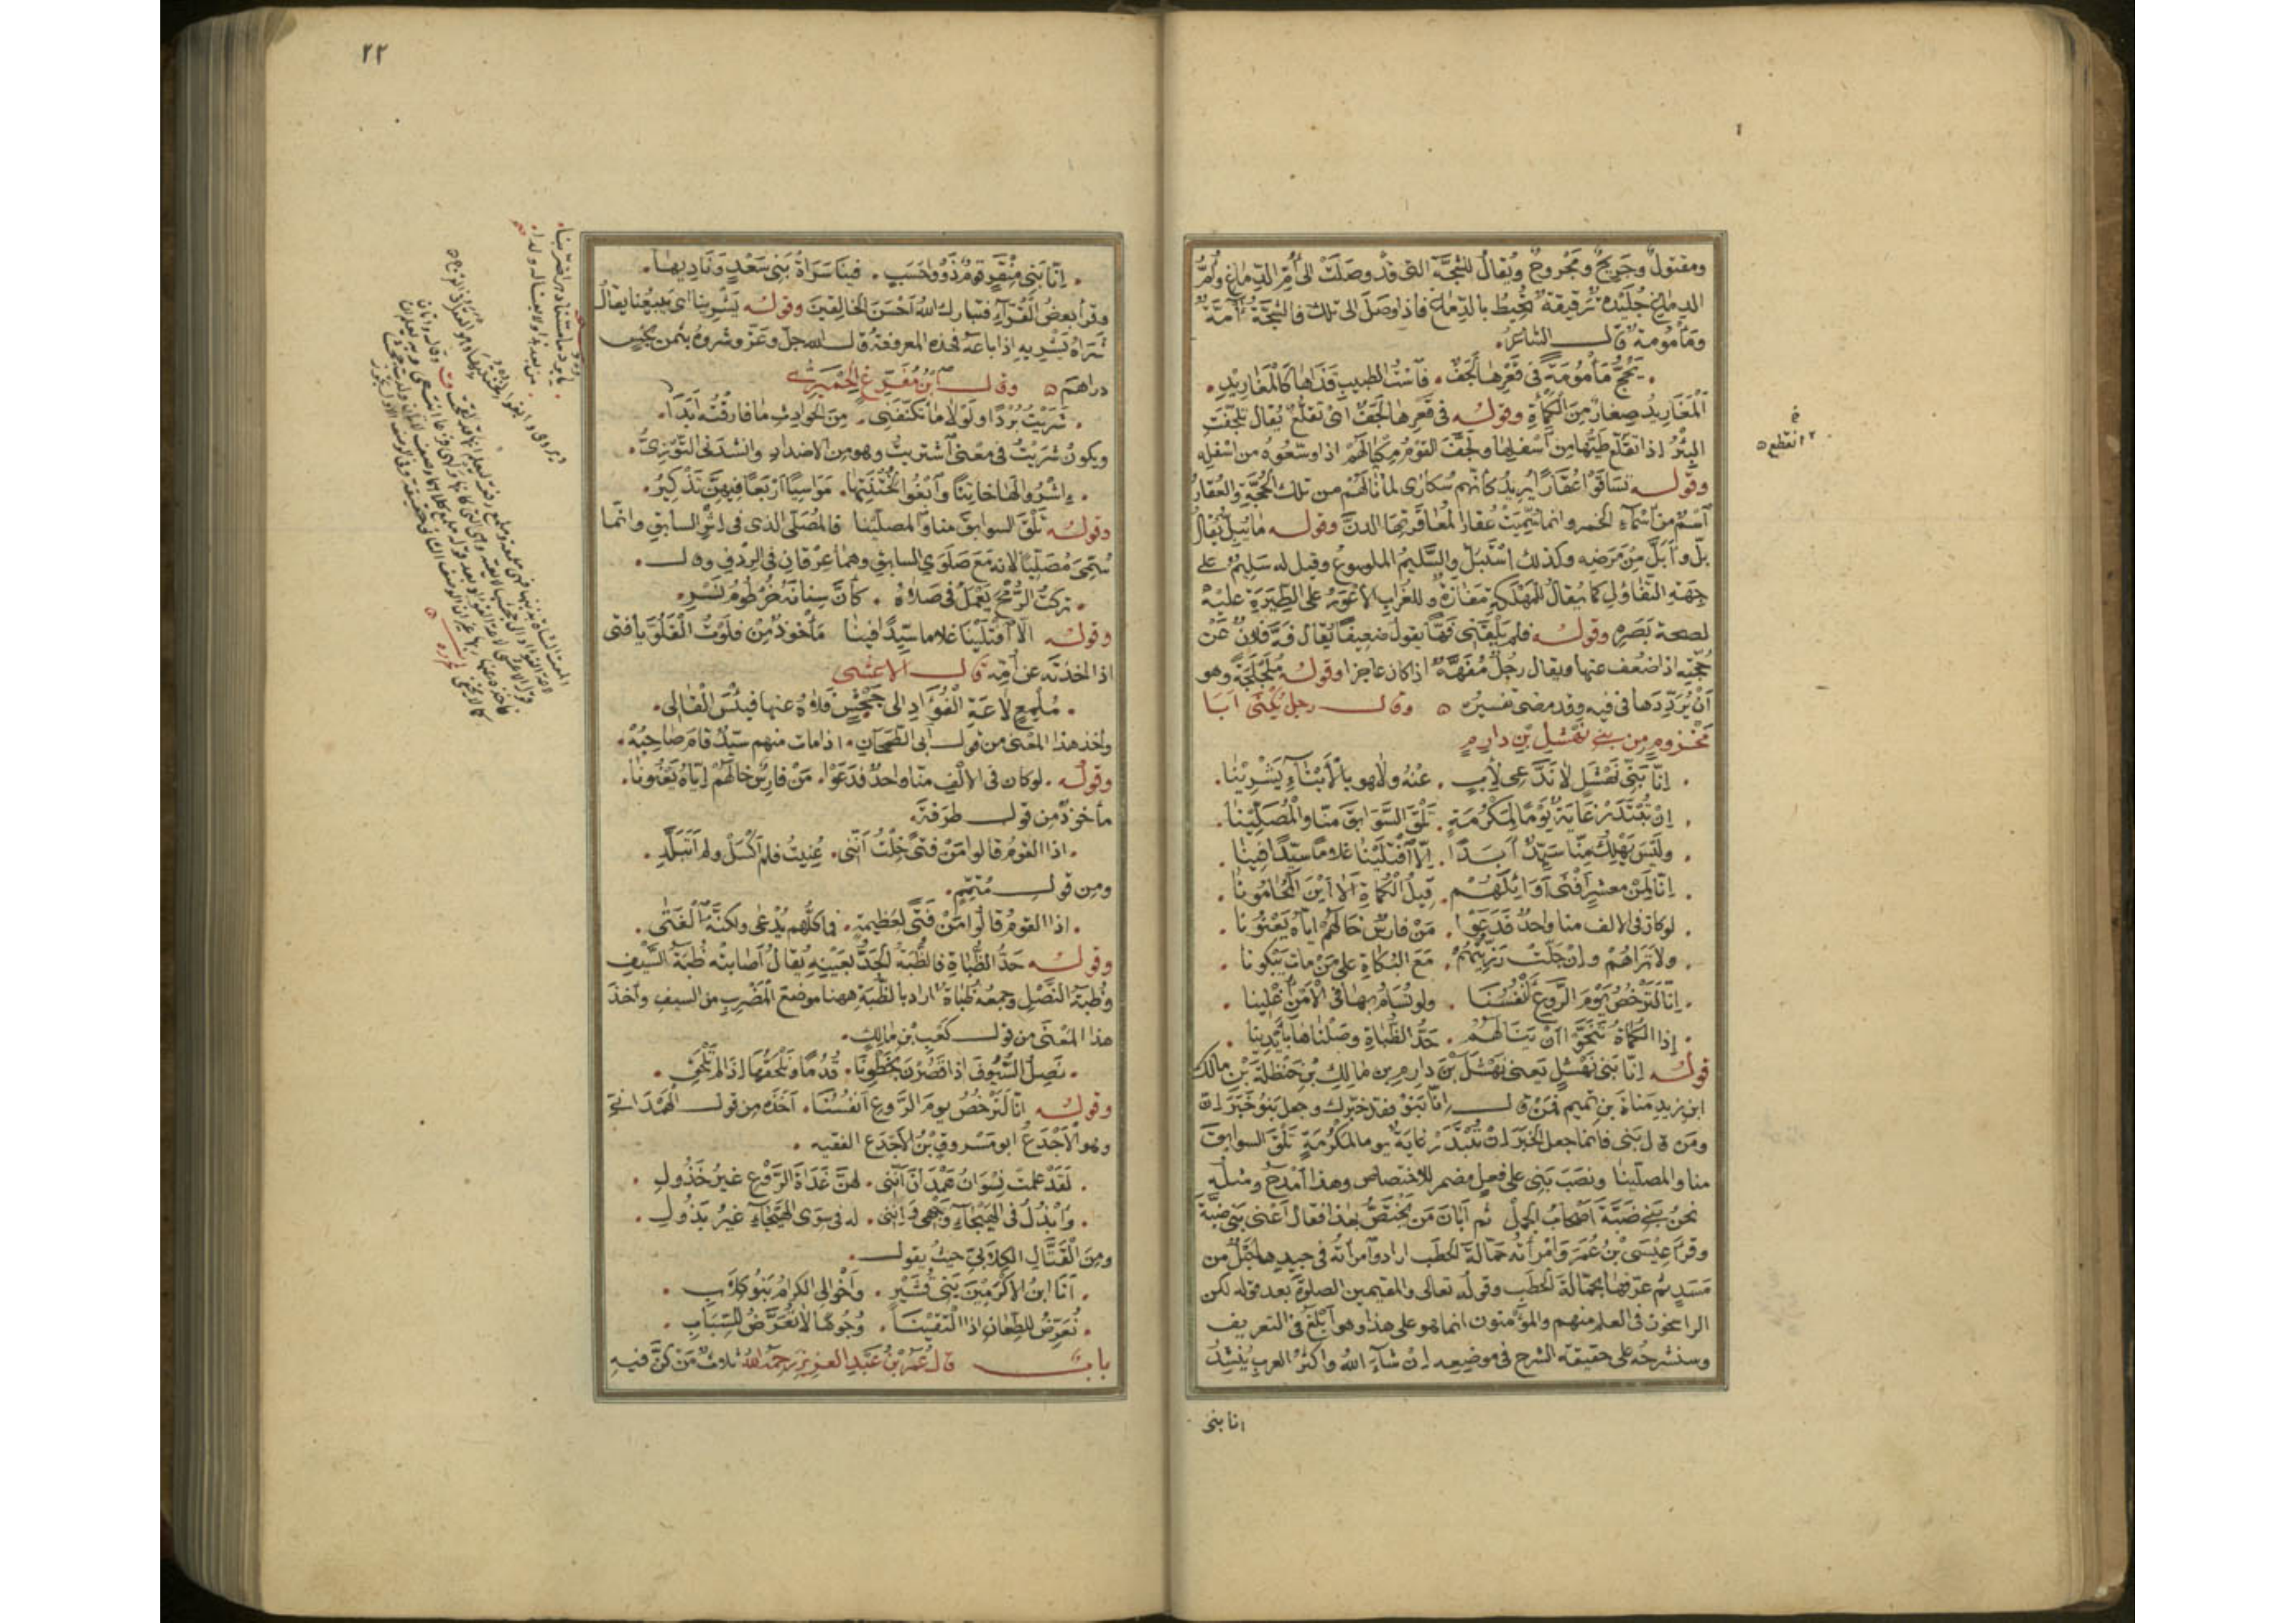 ومقتولٌ وجَرِيحٌ ومَجْروحٌ ويُقالُ للشَجَّة التى قد وصَلَتْ الى أُمِّ الدِمٰاغ وأُمُّ
الدِمٰاغِ جُلَيْدةٌ رَقيقةٌ تُحِيطُ بالدِّمٰاغ فاذا وصَلَ الى تلك فالشَجَّةُ آمّةٌ
ومَأْمُومةٌ قال الشاعرُ.
. يَحُجُّ مَأْمُومَةً فى قَعْرِهٰا لَجَفٌ . فَاسْتُ الطَبيبِ قَذَاهٰا كَالْمَغَاريدِ .
اَلْمَغَاريدُ صِغارٌ مِنَ الْكَمْأَةِ وقولُه فى قَعْرِهٰا لَجَفٌ اى تقلّعٌ يُقالُ تلجّفتِ
البِئْرُ اذا تقلّع طَيُّهٰا مِنْ أَسْفلِهٰا ولَجّفَ القومُ مِكيٰالَهُمْ اذا وسّعُوهُ من اسْفلِهِ
وقولُه تسَاقَوْا عُقَارًا يُريدُ كأنّهم سُكارٰى لمٰا نٰالَهُمْ من تلك الحُجّةِ والعُقارُ
اَسْمٌ من أسمآءِ الخمر وانما سُمّيَتْ عُقارًا لمُعٰاقَرتِهَا الدنَّ وقوله مٰا يُبِلُّ يُقالُ
بلّ وأبَلَّ مِنْ مَرَضِه وكذلك اسْتَبلّ والسَّليمُ الملسوعُ وقيل له سَليمٌ على
جِهةِ التفٰاؤلِ كمٰا يُقالُ للمَهْلَكةِ مَفٰازةٌ وللغُرابِ الأعْوَرُ على الطِيَرَةِ عليه
لصحة بَصَرِه وقولُه فلم يَلْقَنى فَهًّا يقولُ ضعِيفًا يُقال فَهَّ فلانٌ عَنْ
حُجّتِه اذا ضَعُف عنها ويقال رجُلٌ مُفَهَّهٌ اذا كان عاجزا وقولُه مُلَجْلَجَةً وهو
أَنْ يُرَدِّدَهٰا فى فيه وقد مضٰى تفسيرُه ٥ وقال رجلٌ يُكْنٰى ابَا
مَخْزومٍ مِن بنى نَهْشلِ بْنِ دارِمٍ
. اِنّا بَنِى نَهْشَلٍ لٰا نَدَّعِى لِأَبٍ . عَنْهُ ولٰا هو بِالْأَبْنٰآءِ يَشْرينٰا .
. اِنْ تُبْتَدَرْ غٰايَةٌ يَوْمًا لِمَكْرُمَةٍ . تَلْقَ السَّوٰابِقَ مِنّٰا والْمُصَلّينٰا .
. ولَيْسَ يَهْلِكُ مِنّٰا سَيّدٌ أَبَدًا . اِلّٰا افْتَلَيْنٰا غلامًا سيّدًا فِينٰا .
. اِنّٰا لَمِنْ معشرٍ أَفْنٰى أَوَائِلَهُمْ . قِيلُ الْكُمٰاةِ أَلٰا أَيْنَ الْمُحٰامُونٰا .
. لوكان فى الالف منا واحدٌ فَدَعَوْا . مَنْ فارسٌ خٰالَهُمْ اِيّاه يَعْنُونا .
. ولا تَرٰاهُمْ وإنْ جَلّتْ رَزِيَّتُهُمْ . مَعَ البُكٰاةِ على مَنْ مٰاتَ يَبْكُونا .
. اِنّا لَنُرْخِصُ يَوْمَ الرَّوعِ أَنْفُسَنَا . ولو نُسَامُ بهٰا فى الْأَمْنِ أُغْلِينا .
. إذا الْكُمٰاةُ تَنَحَّوْا أَنْ يَنَالَهُمُ . حَدُّ الظُّبٰاةِ وصَلْنٰاهٰا بأَيْدِينٰا .
قولُه اِنّا بَنى نَهْشلٍ يَعنى نَهْشَلَ بْنَ دارِمِ بنِ مٰالِكِ بْنِ حَنْظلةَ بْنِ مٰالك
ابنِ زيدِ مَناةَ بنِ تميم فمَنْ قال اِنّا بَنُو فقد خبّرك وجعل بَنُو خَبَرَ اِنّ
ومَنْ قال بَنى فانما جعل الخَبَرَ اِنْ تُبْتَدَرْ غايَةٌ يوما لمَكْرُمَةٍ تَلْقَ السوابقَ
منا والمصلّينا ونصَبَ بَنِى على فِعلٍ مضمر للاختصاص وهذا امْدحُ ومثلُه
نحنُ بَنِى ضَبّةَ أَصْحٰابُ الْجَملْ ثم أبَانَ مَن يَخْتَصُّ بهذا فقال أَعْنى بَنى ضبّةَ
وقرأ عِيسَى بْنُ عُمَرَ وَامْرأتُه حَمّالةَ الْحَطَبِ اراد وامرأتُه فى جيدِهٰا حَبْلٌ من
مَسَدٍ ثم عرّفهٰا بحَمّالةَ الْحَطَبِ وقولُه تعالى والمقيمين الصلوةَ بعد قوله لكن
الراسخون فى العلم منهم والمؤْمنون انما هو على هذا وهو أَبْلَغُ فى التعريف
وسنشرحُه على حقيقة الشرح فى موضِعِه اِنْ شآءَ اللهُ واكثرُ العربِ يُنشِدُ
انا بنى
انقطع ٥
٢٢
. اِنّا بَنِى مِنْقَرٍ قومٌ ذَوُو حَسَبٍ . فِينَا سَرَاةُ بَنى سَعْدٍ وَنَادِيهٰا .
وقرأ بعضُ القُرّآءِ فتبارك اللهُ أَحْسَنَ الخالِقينَ وقولُه يَشْرِينا اى يَبيعُنا يقالُ
شَرَاهُ يَشْرِيهِ اذا باعَه فهذه المعروفةُ قال الله جلّ وعَزّ وشروهُ بثمنٍ بخْسٍ
دراهمَ ٥ وقال ابْنُ مُفرّغٍ الحِمْيَرِىُّ
. شَرَيْتُ بُرْدًا ولَوْلٰا مٰا تَكَنَّفَنِى . مِنَ الحَوٰادِثِ مٰا فٰارقْتُه أَبَدًا .
ويكونُ شَرَيْتُ فى معنى اَشْتريتُ وهو من الاضداد وانشدنى التَّوَّزِىُّ .
. اِشْرُوا لَهٰا خٰاتِنًا وَابْغُوا لِخُتْنَتِهٰا . مَوٰاسِيًا أَرْبَعًا فِيهِنَّ تَذْكِيرُ .
وقولُه تَلْقَ السوابقَ منا والمصلّينا فالمُصَلّى الذى فى اِثْرِ السابقِ وانّما
سُمِّىَ مُصَلّيًا لانه مَعَ صَلَوَىِ السابقِ وهمٰا عِرْقانِ فى الرِدْفِ وقال .
. تركتُ الرُّمْحَ يَعْمَلُ فى صَلٰاهُ . كَأَنَّ سِنٰانَهُ خُرْطُومُ نَسْرِ .
وقولُه الّا افْتَلَيْنَا غلامًا سيّدًا فينٰا مَأْخوذٌ مِنْ فلَوْتُ الْفَلُوَّ يا فتى
اذا اخذْتَه عن أُمِّه قال الاعشى
. مُلْمِعٍ لٰاعَةِ الْفُؤَادِ الى جَحْشٍ فَلٰاهُ عنها فبِئْسَ الْفٰالِى .
وأخذ هذا المعنى من قول أبى الطَّمَحٰانِ . اذا مات منهم سيّدٌ قامَ صٰاحِبُهْ .
وقولُه . لو كان فى الالْفِ منّا واحدٌ فدَعَوْا . مَنْ فارِسٌ خالَهُمْ اِيّاهُ يَعْنُونٰا .
مأخوذٌ من قول طَرَفةَ
. اذا القومُ قالوا مَنْ فتًى خِلْتُ أَنّنى . عُنِيتُ فلم أَكْسَلْ ولم أَتَبلَّدِ .
ومن قول مُتَمِّمٍ .
. اذا القومُ قالُوا مَنْ فَتًى لعَظيمةٍ . فما كلُّهم يُدْعٰى ولكنَّهُ الْفَتٰى .
وقولُه حَدُّ الظُّبٰاةِ فالظُبَةُ الْحَدُّ بعَيْنِه يُقالُ أصٰابتْه ظُبَةُ السَّيْفِ
وظُبَةُ النَّصْلِ وجمعُه ظُبٰاةٌ اراد بالظُبَةِ هٰهنا موضعَ الْمَضْرِبِ من السيف وأخذَ
هذا المَعْنٰى من قول كَعْبِ بْنِ مالكٍ .
. نَصِلُ السُّيُوفَ اذا قَصُرْنَ بخَطْوِنَا . قُدُمًا ونُلْحِقُهٰا اِذَا لم تَلْحَقِ .
وقولُه انّا لَنُرْخِصُ يومَ الرَّوعِ أَنْفُسَنَا . أَخَذَه من قول الهَمْدَانىِّ
وهو الْأَجْدَعُ ابو مَسْروقِ بْنِ الأجْدَعِ الفقيه .
. لَقَدْ عَلِمَتْ نِسْوَانُ هَمْدَانَ أَنّنى . لهُنَّ غَدَاةَ الرَّوْعِ غيرُ خَذُولِ .
. وَأَبْذُلُ فى الهَيْجٰآءِ وَجْهِى وَاِنّنى . له فى سِوَى الْهَيْجٰآءِ غيرُ بَذُولِ .
ومِنَ الْقَتّٰالِ الكِلٰابىِّ حيثُ يقول .
. أَنَا ابنُ الأكْرَمِينَ بَنِى قُشَيْرٍ . وأَخْوالِى الكِرٰامُ بَنُو كِلٰابِ .
. نُعَرِّضُ للطِعٰانِ اذا الْتَقَيْنَا . وُجُوهًا لٰا تُعَرَّضُ للسِّبَابِ .
بابٌ قال عُمَرُ بْنُ عَبْدِ العزيزِ رَحِمَهُ اللهُ ثلاثٌ مَنْ كُنَّ فيه